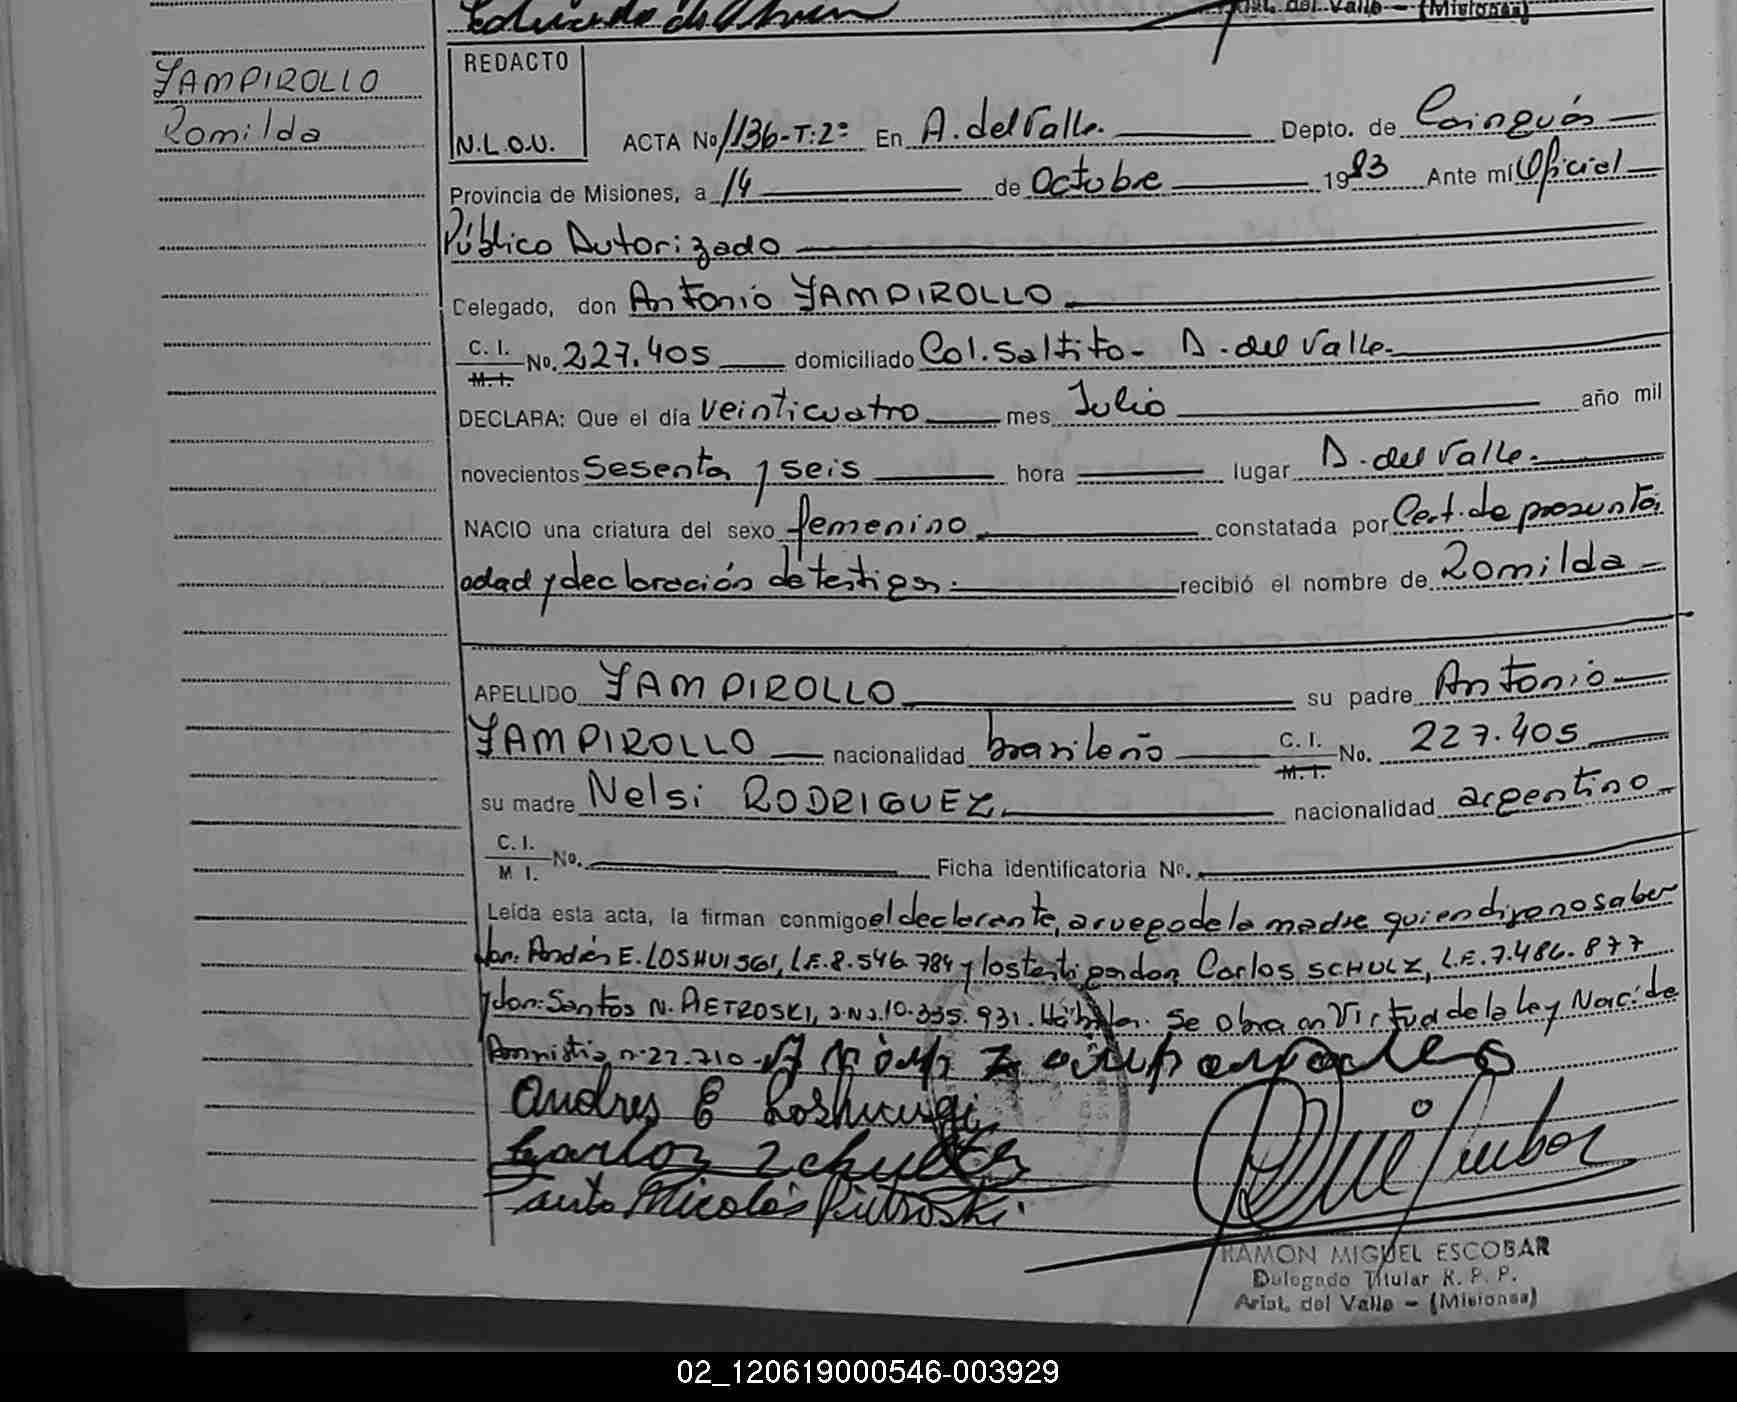 Arist. del Valle - (Misiones)
ZAMPIROLLO
Romilda
REDACTO
N.L.O.V.
ACTA No 1136-T:2º En A. del Valle. Depto. de Cainguás
Provincia de Misiones, a 14 de Octubre 1983 Ante mí Oficial
Público Autorizado
Delegado, don Antonio ZAMPIROLLO
C. I. M. I. No. 227.405 domiciliado Col. Saltito - A. del Valle.
DECLARA: Que el día veinticuatro mes Julio año mil
novecientos sesenta y seis hora lugar A. del Valle.
NACIO una criatura del sexo femenino constatada por Cert. de presunta
edad y declaración de testigos. recibió el nombre de Romilda
APELLIDO ZAMPIROLLO su padre Antonio
ZAMPIROLLO nacionalidad brasileño C. I. M. I. No. 227.405
su madre Nelsi RODRIGUEZ nacionalidad argentino
C. I. M I. No. Ficha identificatoria No.
Leída esta acta, la firman conmigo el declarante, a ruego de la madre quien dijo no saber
don: Andrés E. LOSHUISGI, L.E. 8.546.784 y los testigos don Carlos SCHULZ, L.E. 7.486.877
y don: Santos N. PIETROSKI, D.N.I. 10.335.931. Hábiles. Se obra en Virtud de la Ley Nac. de
Amnistia n. 22.710
Andres E
Carlos
Santo Nicolás Pietroski
RAMON MIGUEL ESCOBAR
Delegado Titular R. P. P.
Arist. del Valle - (Misiones)
02_120619000546-003929